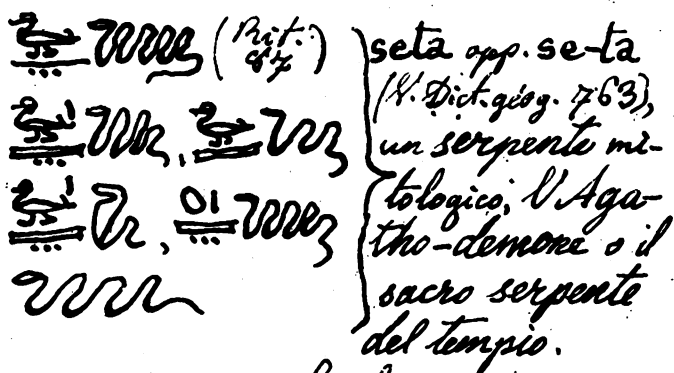 (Rit. 87)
seta opp. se-ta
(V. Dict. géog. 763),
un serpente mi-
tologico; l'Aga-
tho-demone o il
sacro serpente
del tempio.